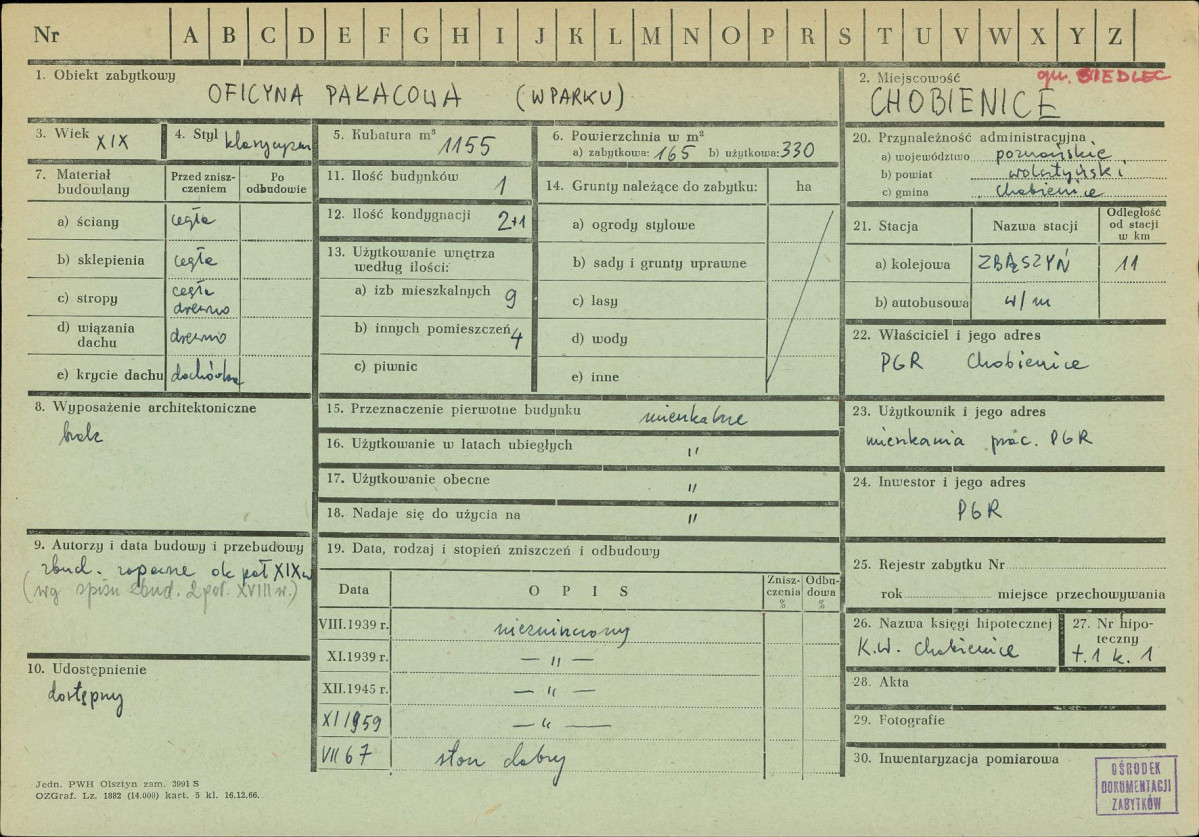 Nr A B C D E F G H I J K L M N O P R S T U V W X Y Z
1. Obiekt zabytkowy
OFICYNA PAŁACOWA (W PARKU)
2. Miejscowość gm. SIEDLEC
CHOBIENICE
3. Wiek XIX
4. Styl klasycyzm
5. Kubatura m³ 1155
6. Powierzchnia w m²
a) zabytkowa: 165 b) użytkowa: 330
7. Materiał budowlany
Przed zniszczeniem
Po odbudowie
a) ściany cegła
b) sklepienia cegła
c) stropy cegła
drewno
d) wiązania dachu drewno
e) krycie dachu dachówka
8. Wyposażenie architektoniczne
brak
9. Autorzy i data budowy i przebudowy
zbud. zapewne ok poł XIX w
(wg spisu zbud. 2 poł. XVIII w.)
10. Udostępnienie
dostępny
11. Ilość budynków 1
12. Ilość kondygnacji 2+1
13. Użytkowanie wnętrza
według ilości:
a) izb mieszkalnych 9
b) innych pomieszczeń 4
c) piwnic
14. Grunty należące do zabytku: ha
a) ogrody stylowe
b) sady i grunty uprawne
c) lasy
d) wody
e) inne
15. Przeznaczenie pierwotne budynku mieszkalne
16. Użytkowanie w latach ubiegłych "
17. Użytkowanie obecne "
18. Nadaje się do użycia na "
19. Data, rodzaj i stopień zniszczeń i odbudowy
Data OPIS Zniszczenia % Odbudowa %
VIII.1939 r. niezniszczony
XI.1939 r. — " —
XII.1945 r. — " —
XI 1959 — " —
VII 67 stan dobry
20. Przynależność administracyjna
a) województwo poznańskie
b) powiat wolsztyński
c) gmina Chobienice
21. Stacja Nazwa stacji Odległość od stacji w km
a) kolejowa ZBĄSZYŃ 11
b) autobusowa w/m
22. Właściciel i jego adres
PGR Chobienice
23. Użytkownik i jego adres
mieszkania prac. PGR
24. Inwestor i jego adres
PGR
25. Rejestr zabytku Nr
rok miejsce przechowywania
26. Nazwa księgi hipotecznej
K.W. Chobienice
27. Nr hipoteczny
t. 1 k. 1
28. Akta
29. Fotografie
30. Inwentaryzacja pomiarowa
OŚRODEK
DOKUMENTACJI
ZABYTKÓW
Jedn. PWH Olsztyn zam. 3991 S
OZGraf. Lz. 1882 (14.000) kart. 5 kl. 16.12.66.